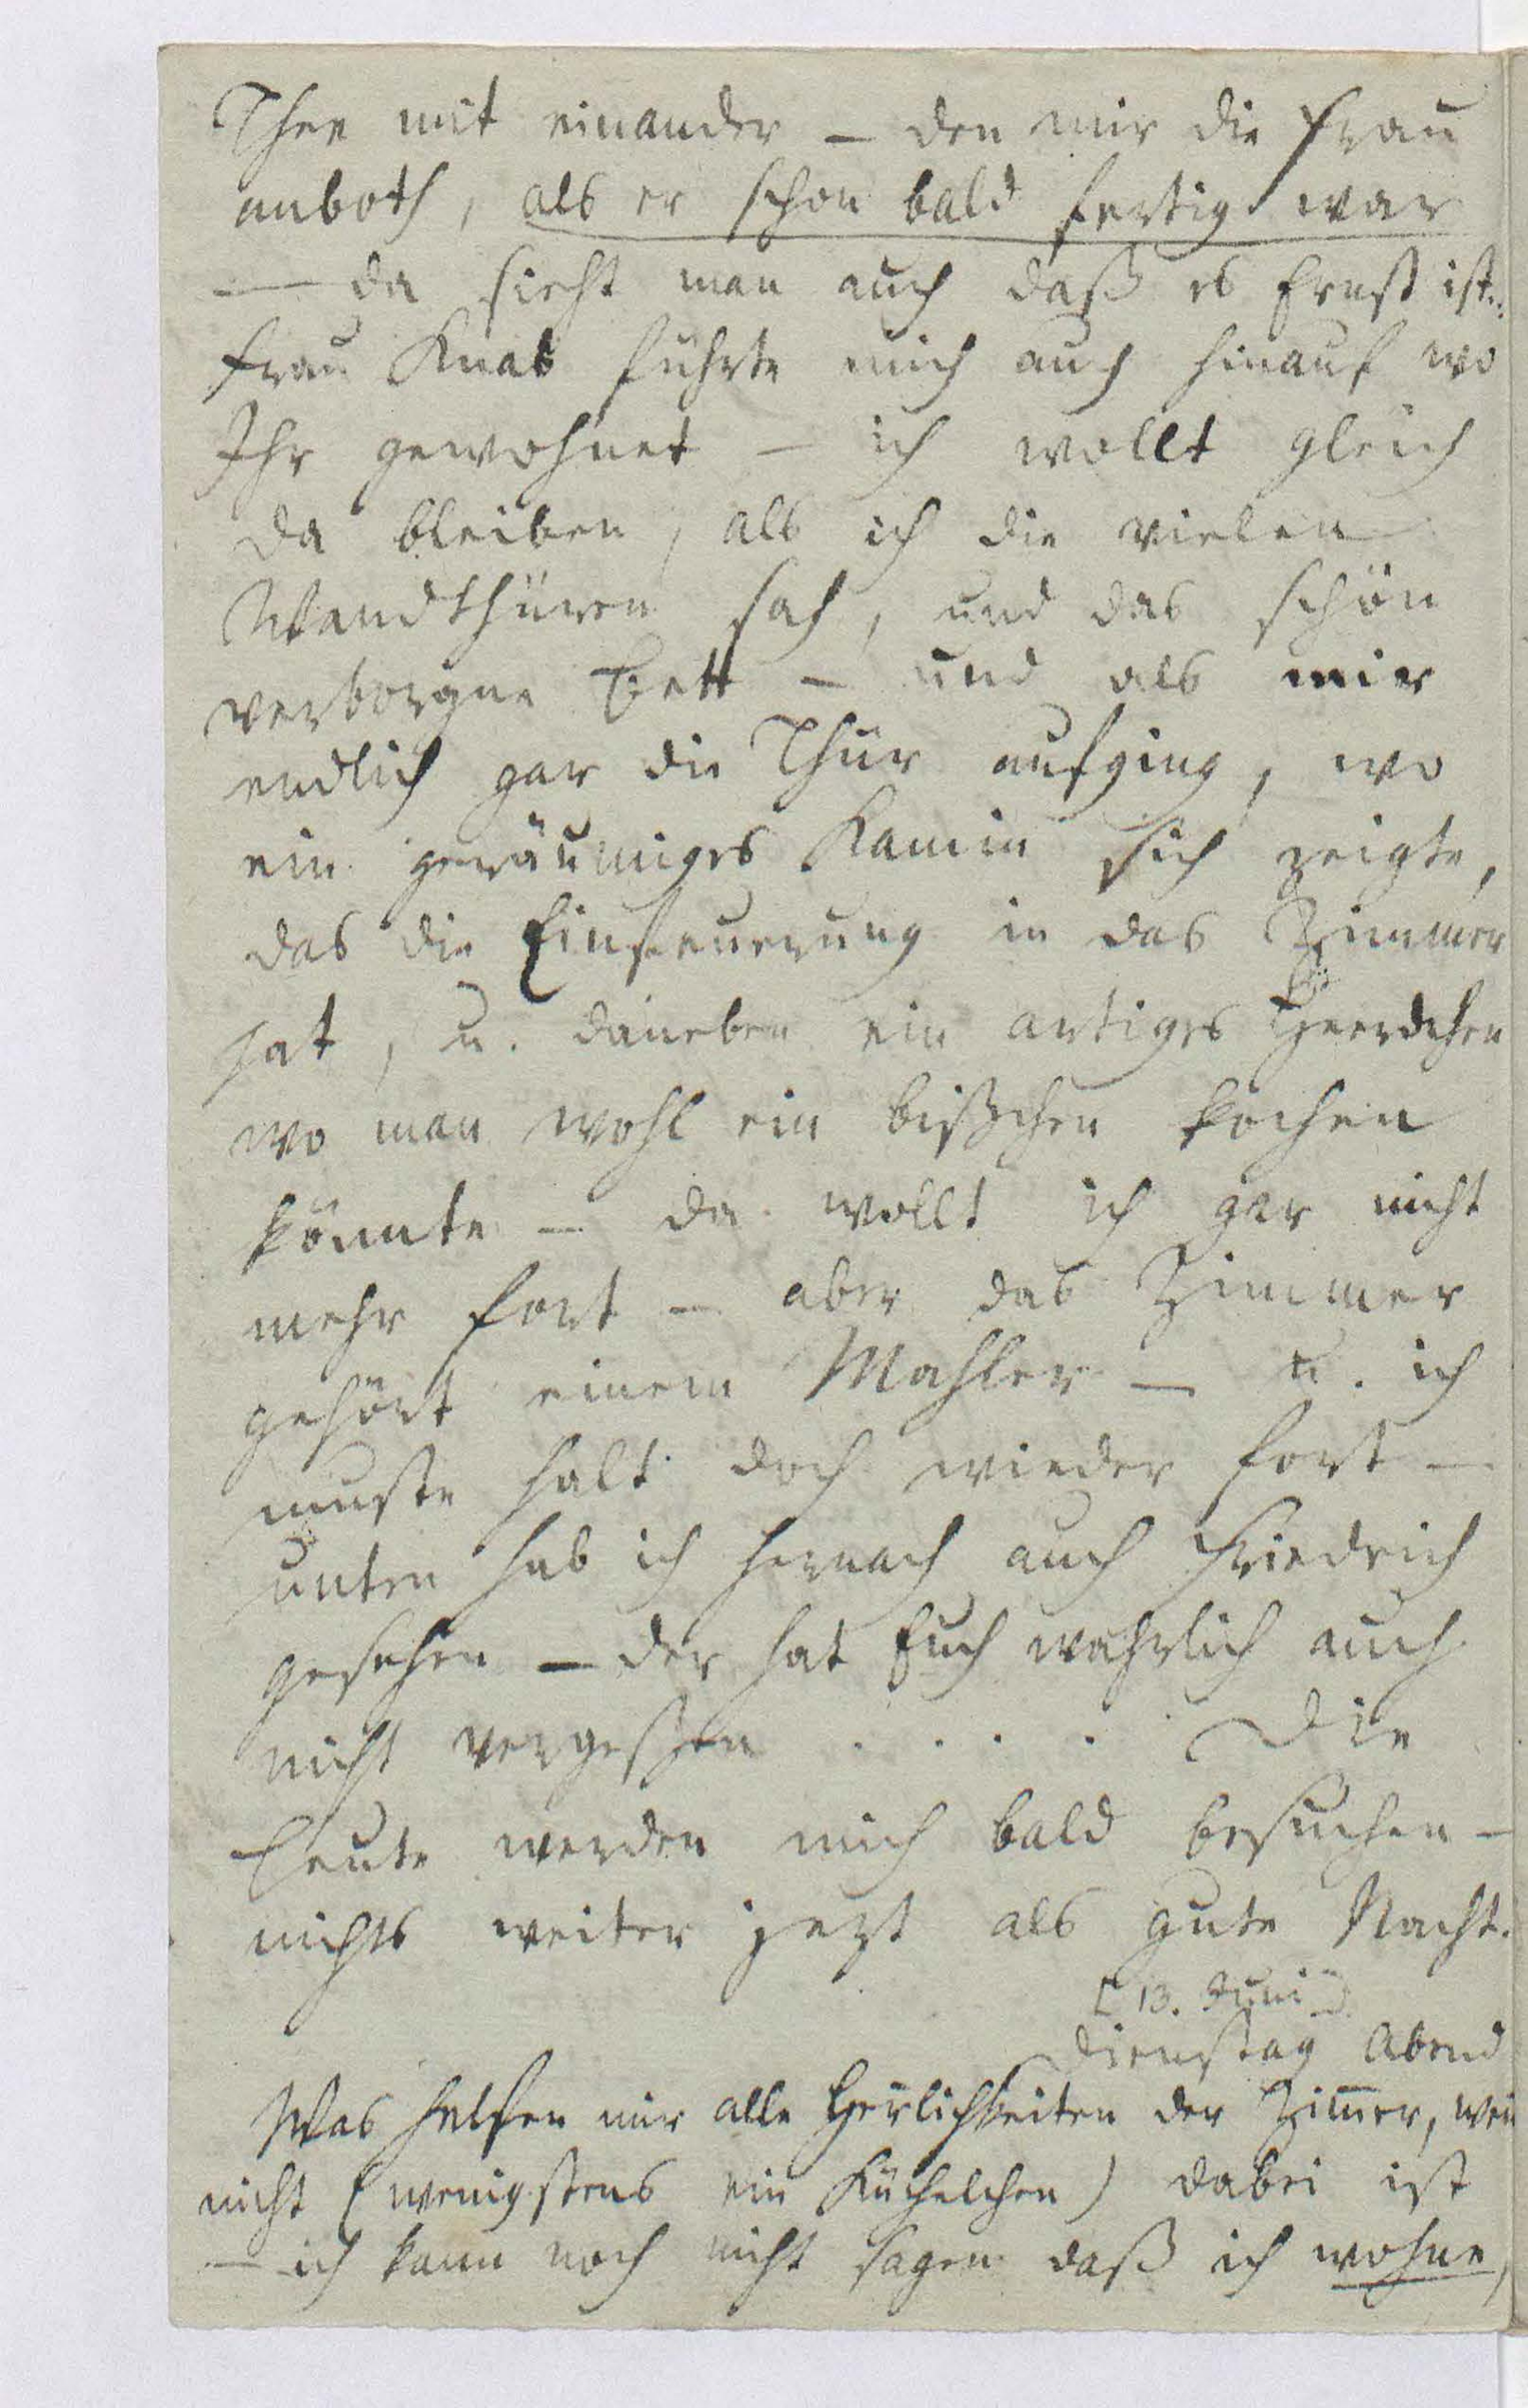 Thee mit einander – den mir die Frau
anboth, als er schon bald fertig war
— da sieht man auch daß es Ernst ist..
Frau Knab führte mich auch hinauf wo
Ihr gewohnet – ich wollt gleich
da bleiben, als ich die vielen
Wandthüren sah, und das schön
verborgne Bett – und als mir
endlich gar die Thür aufging, wo
ein geräumiges Kamin sich zeigte,
das die Einfeuerung in das Zimmer
hat, u. daneben ein artiges Heerdchen
wo man wohl ein bißchen kochen
könnte – da wollt ich gar nicht
mehr fort – aber das Zimmer
gehört einem Mahler – u. ich
mußte halt doch wieder fort –
unten hab ich hernach auch Friedrich
gesehen – der hat Euch wahrlich auch
nicht vergeßen . . . . Die
Leute werden mich bald besuchen –
nichts weiter jezt als gute Nacht.
[13. Juni]
Dienstag Abend
Was helfen mir alle Herrlichkeiten der Zim̄er, wen̄
nicht (wenigstens ein Küchelchen) dabei ist
– ich kann noch nicht sagen daß ich wohne,